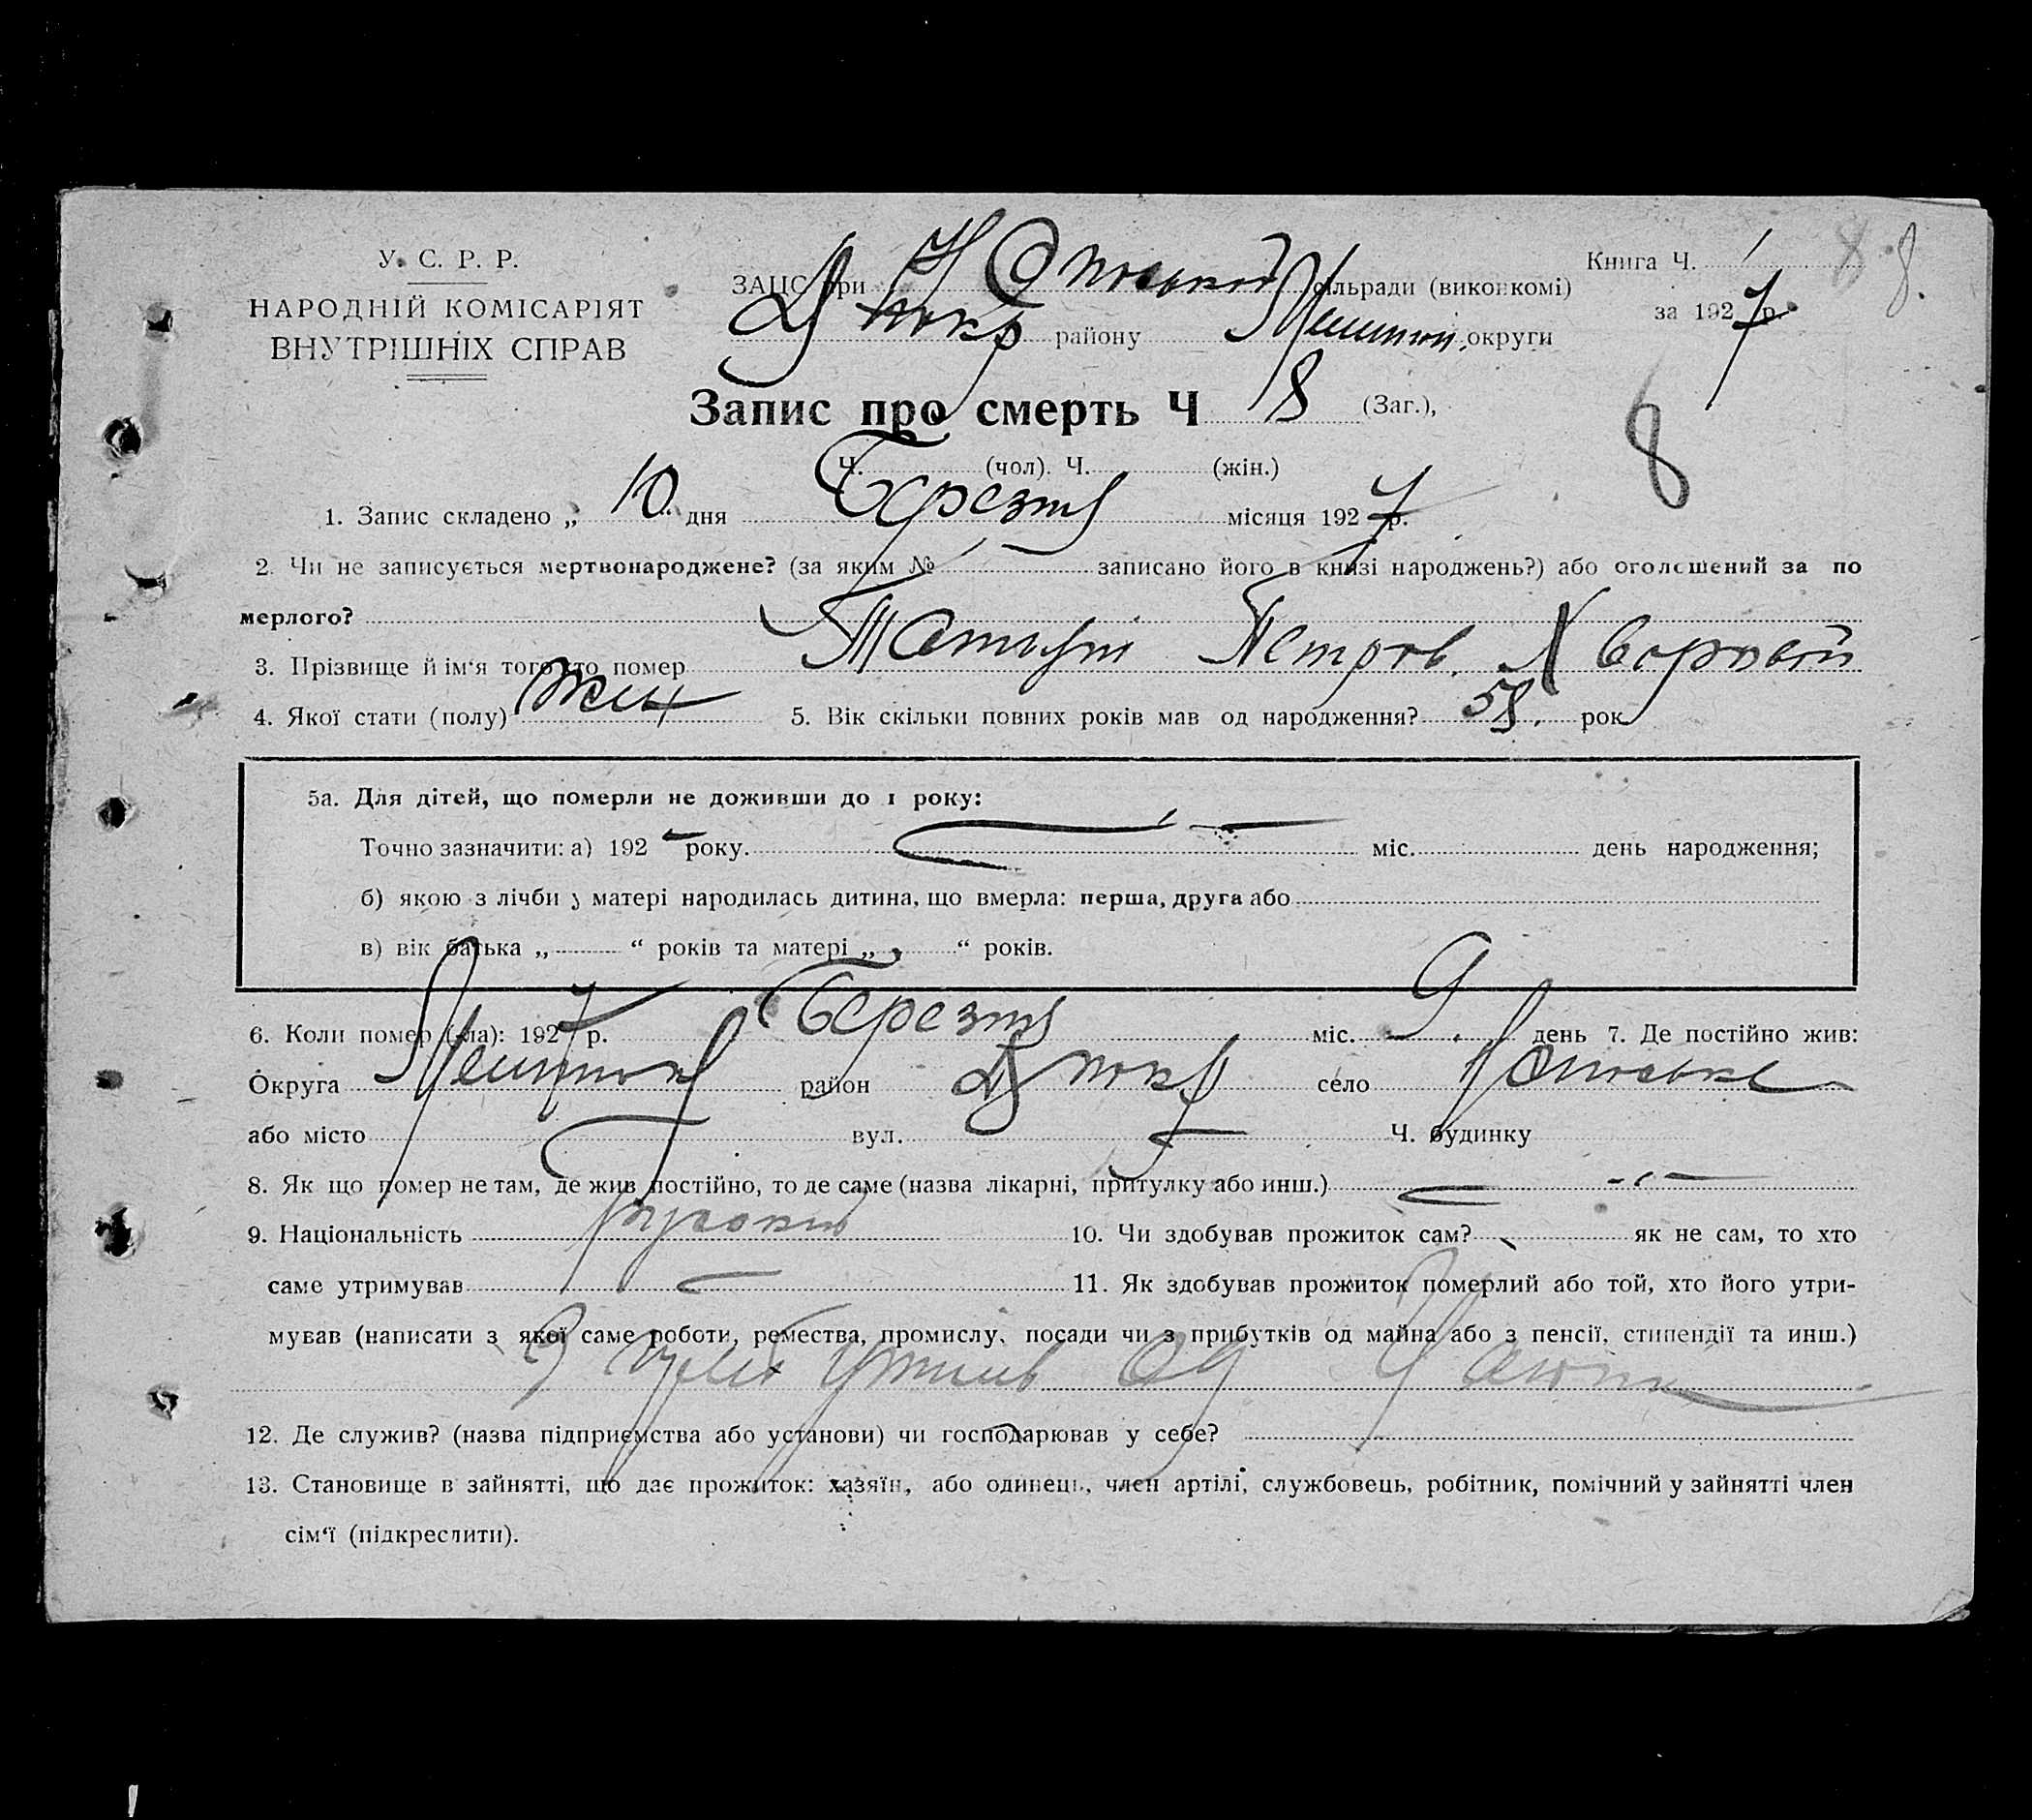 У. С. Р. Р.
НАРОДНІЙ КОМІСАРІЯТ
ВНУТРІШНІХ СПРАВ
Книга Ч. 1 8 8.
ЗАЦС при сільради (виконкомі)
за 1927 р.
району округи
Запис про смерть Ч 8 (Заг.),
8
Ч. (чол). Ч. (жін.)
1. Запис складено „ 10 дня Березня місяця 1927 р.
2. Чи не записується мертвонароджене? (за яким № записано його в книзі народжень?) або оголошений за по
мерлого?
3. Прізвище й ім‘я того хто помер Петров.
4. Якої стати (полу) жен 5. Вік скільки повних років мав од народження? 58. рок
5а. Для дітей, що померли не доживши до 1 року:
Точно зазначити: а) 192 року. міс. день народження;
б) якою з лічби у матері народилась дитина, що вмерла: перша, друга або
в) вік батька „ “ років та матері „ “ років.
6. Коли помер (-ла): 1927 р. Березня міс. 9. день 7. Де постійно жив:
Округа район село
або місто вул. Ч. будинку
8. Як що помер не там, де жив постійно, то де саме (назва лікарні, притулку або инш.)
9. Національність 10. Чи здобував прожиток сам? як не сам, то хто
саме утримував 11. Як здобував прожиток померлий або той, хто його утри-
мував (написати з якої саме роботи, ремества, промислу, посади чи з прибутків од майна або з пенсії, стипендії та инш.)
12. Де служив? (назва підприємства або установи) чи господарював у себе?
13. Становище в зайнятті, що дає прожиток: хазяїн, або одинець, член артілі, службовець, робітник, помічний у зайнятті член
сім‘ї (підкреслити).